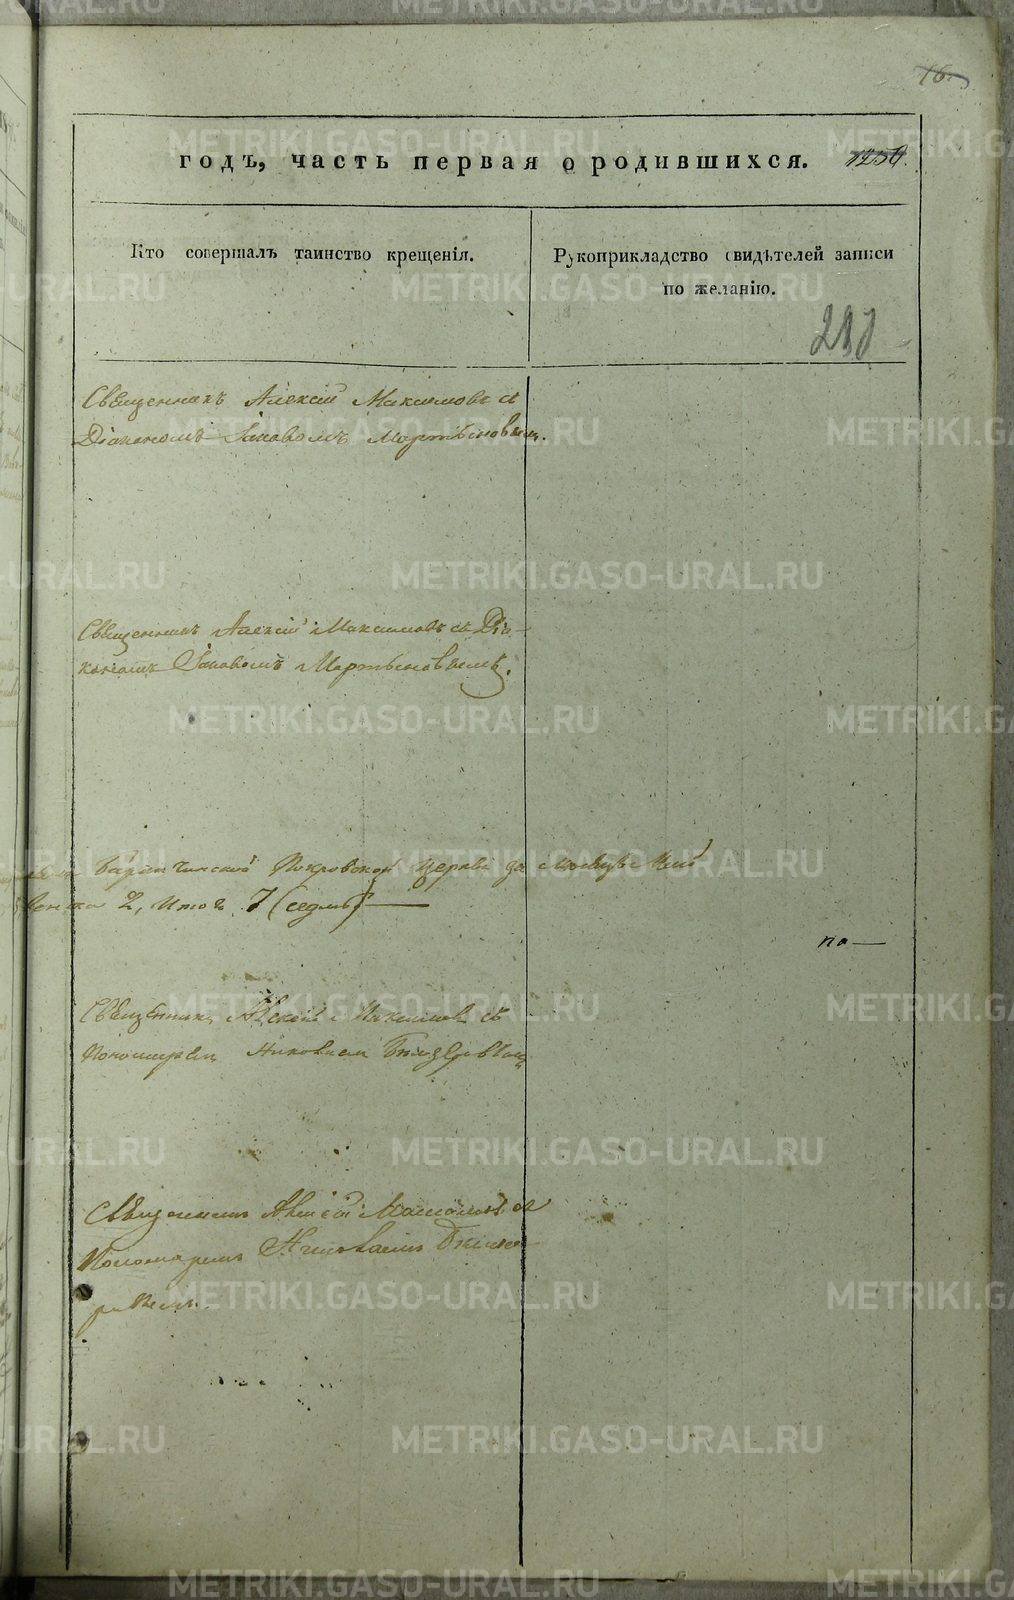 16.
годъ, часть первая о родившихся. 1250.
Кто совершалъ таинство крещенія.
Рукоприкладство свидѣтелей записи
по желанію.
Священникъ Алексій Максимовъ съ
Діакономъ Іаковомъ Мартыновымъ.
Священникъ Алексій Максимовъ съ Діа-
кономъ Іаковомъ Мартыновымъ.
Покровской церкви за Мѣсяцъ Маій
2, Итого 7 (седмь)
по
Священникъ Алексій Максимовъ съ
Пономаремъ Николаемъ
Священникъ Алексій Максимовъ съ
Пономаремъ Николаемъ
METRIKI.GASO-URAL.RU